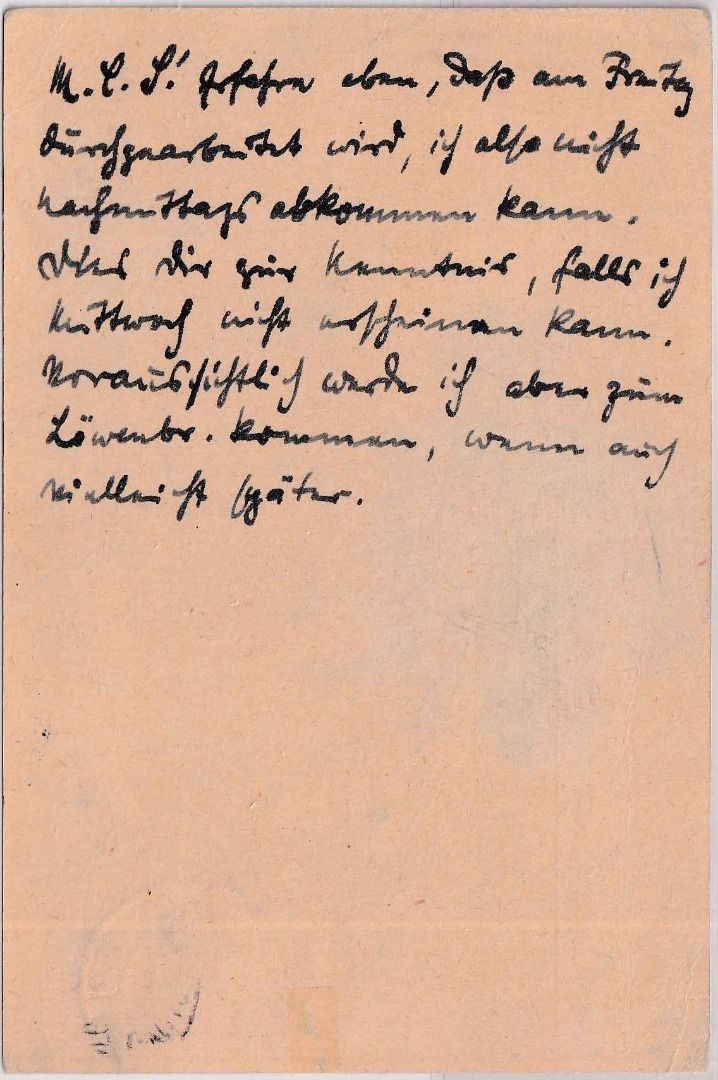 M. L. S.! Erfahre eben, daß am Freitag
durchgearbeitet wird, ich also nicht
nachmittags abkommen kann.
Dies dir zur Kenntnis, falls ich
Mittwoch nicht erscheinen kann.
Voraussichtlich werde ich aber zum
Löwenbr. kommen, wenn auch
vielleicht später.